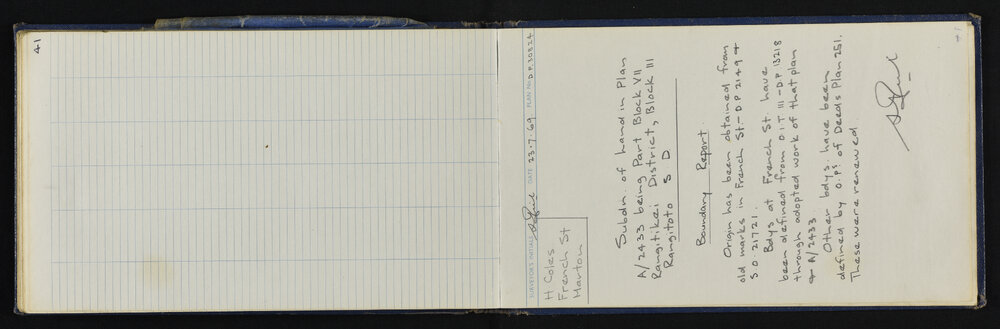 41
SURVEYOR'S INITIALS DATE 23.7.69 PLAN No D.P. 30824
H Coles
French St
Marton
Subdn. of hand in Plan
A/2433 being Part Block VII
Rangitikei District, Block III
Rangitoto S D
Boundary Report.
Origin has been obtained from
old marks in French St. - D P 21494
S O 21721.
Bdys at French St have
been defined from O I T III - D P 13218
through adopted work of that plan
+ A/2433.
Other bdys. have been
defined by O.P.s of Deeds Plan 251.
These were renewed
41